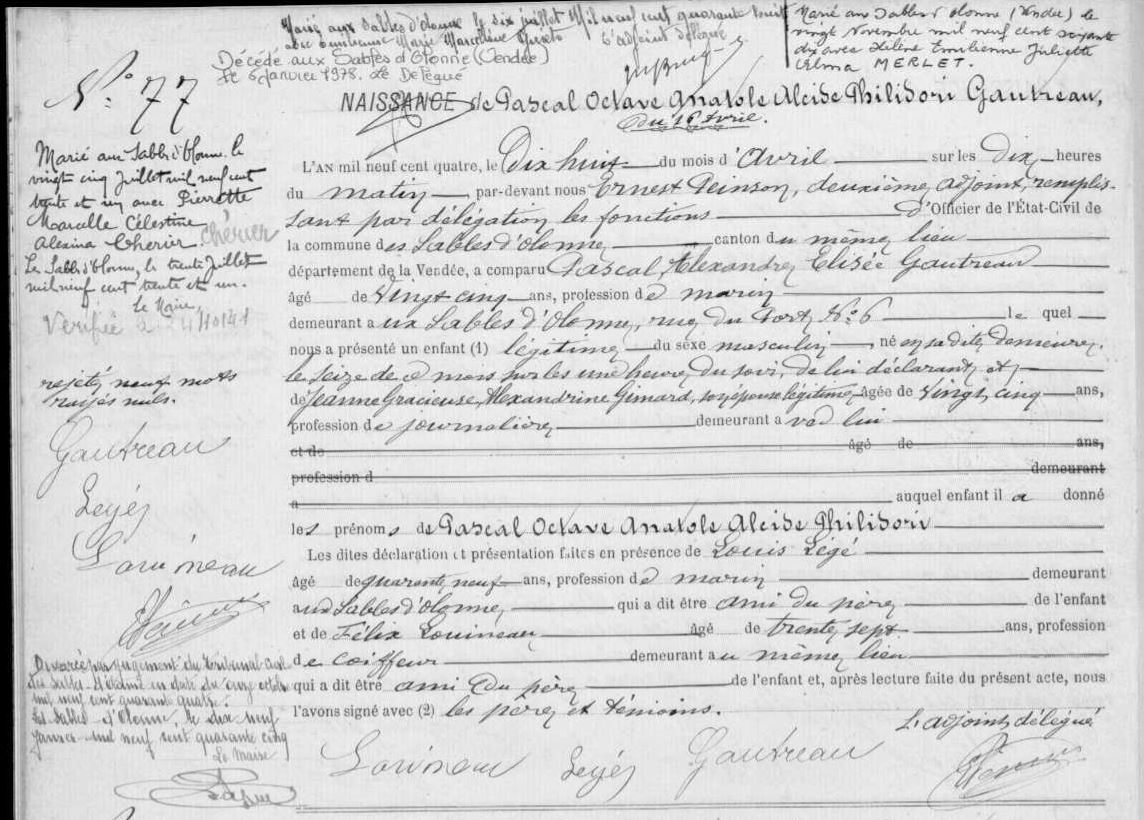 Marié aux Sables d'Olonne le six juillet Mil neuf cent quarante huit
avec Emilienne Marie Marcelline
L'adjoint délégué
Décédé aux Sables d'Olonne (Vendée)
le 6 Janvier 1978. Le Délégué
Marié aux Sables d'Olonne (Vendée) le
vingt Novembre mil neuf cent soixante
dix avec Hélène Emilienne Juliette
Alma MERLET.
N° 77
NAISSANCE de Pascal Octave Anatole Alcide Philidori Gautreau,
du 16 Avril.
Marié aux Sables d'Olonne le
vingt cinq Juillet mil neuf cent
trente et un avec Pierrette
Marcelle Célestine
Alexina Chérier. Chérier
Les Sables d'Olonne, le trente Juillet
mil neuf cent trente et un.
Le Maire,
Vérifiée
rejeté, neuf mots
rayés nuls.
Gautreau
Legés
Louineau
Divorcé par jugement du Tribunal civil
des Sables d'Olonne en date du onze octobre
mil neuf cent quarante quatre.
Les Sables d'Olonne, le dix neuf
janvier mil neuf cent quarante cinq
Le Maire
L'AN mil neuf cent quatre, le Dix huit du mois d'Avril sur les dix heures
du matin, par-devant nous Ernest Peinson, deuxième adjoint, remplis-
sant par délégation les fonctions d'Officier de l'État-Civil de
la commune des Sables d'Olonne, canton du même lieu
département de la Vendée, a comparu Pascal Alexandre Elisée Gautreau
âgé de vingt cinq ans, profession de marin
demeurant aux Sables d'Olonne, rue du Port, N° 6 le quel
nous a présenté un enfant (1) légitime du sexe masculin, né en sa dite demeure,
le seize de ce mois sur les une heure du soir, de lui déclarant et
de Jeanne Gracieuse Alexandrine Gimard, son épouse légitime, âgée de vingt cinq ans,
profession de journalière demeurant avec lui
et de âgé de ans,
profession d demeurant
a auquel enfant il a donné
les prénoms de Pascal Octave Anatole Alcide Philidori
Les dites déclaration et présentation faites en présence de Louis Légé
âgé de quarante neuf ans, profession de marin demeurant
aux Sables d'Olonne, qui a dit être ami du père de l'enfant
et de Félix Louineau âgé de trente sept ans, profession
de coiffeur demeurant au même lieu
qui a dit être ami du père de l'enfant et, après lecture faite du présent acte, nous
l'avons signé avec (2) les père et témoins.
L'adjoint délégué
Louineau Legés Gautreau